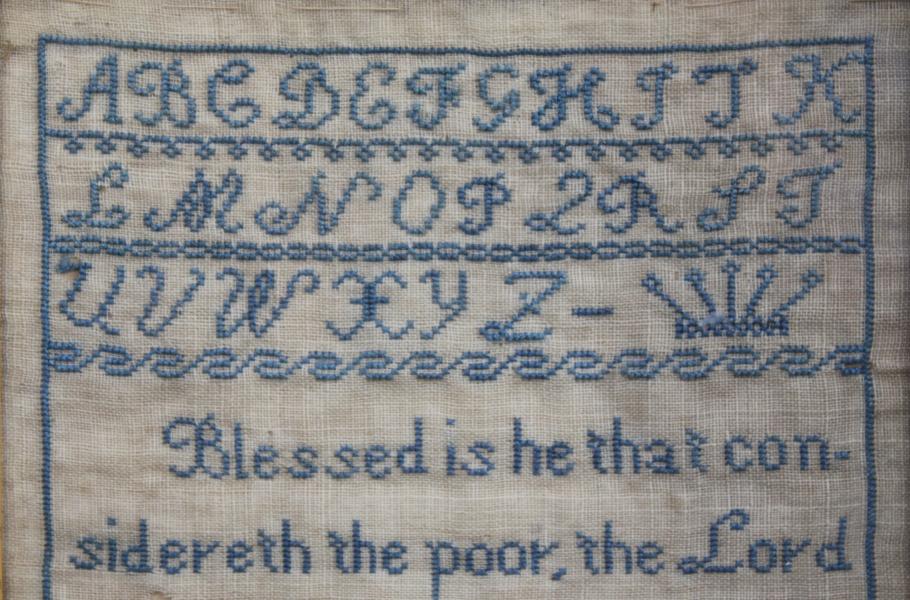 A B C D E F G H I J K
L M N O P Q R S T
U V W X Y Z -
Blessed is he that con-
sidereth the poor, the Lord